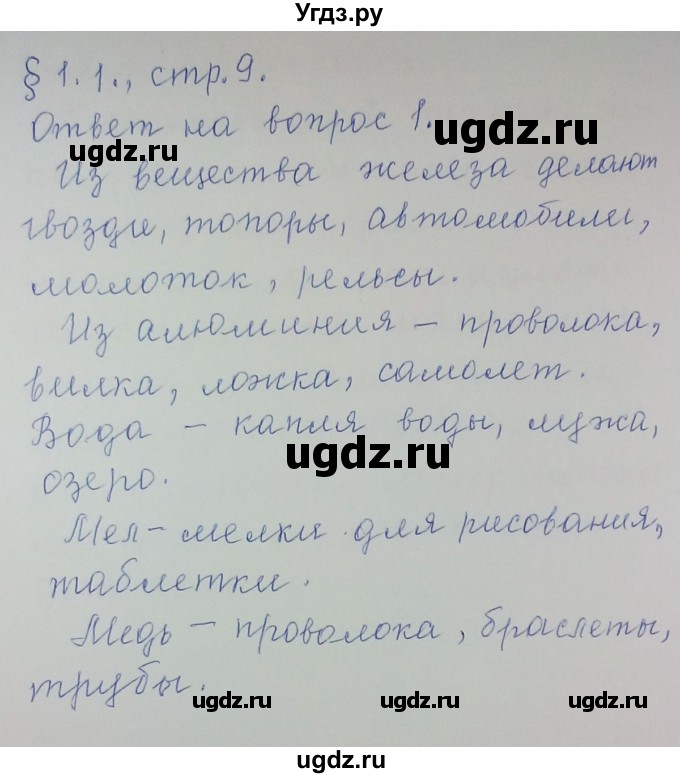 Угдз.ру
§ 1.1., стр.9.
Ответ на вопрос 1.
ugdz.ru
ugdz.ru
Из вещества железа делают
гвозди, топоры, автомобили,
молоток, рельсы.
Из алюминия – проволока,
вилка, ложка, самолет.
Вода – капля воды, лужа,
ugdz.ru
озеро.
Мел – мелки для рисования,
таблетки.
Медь – проволока, браслеты,
трубы.
ugdz.ru
ugdz.ru
ugdz.ru
ugdz.ru